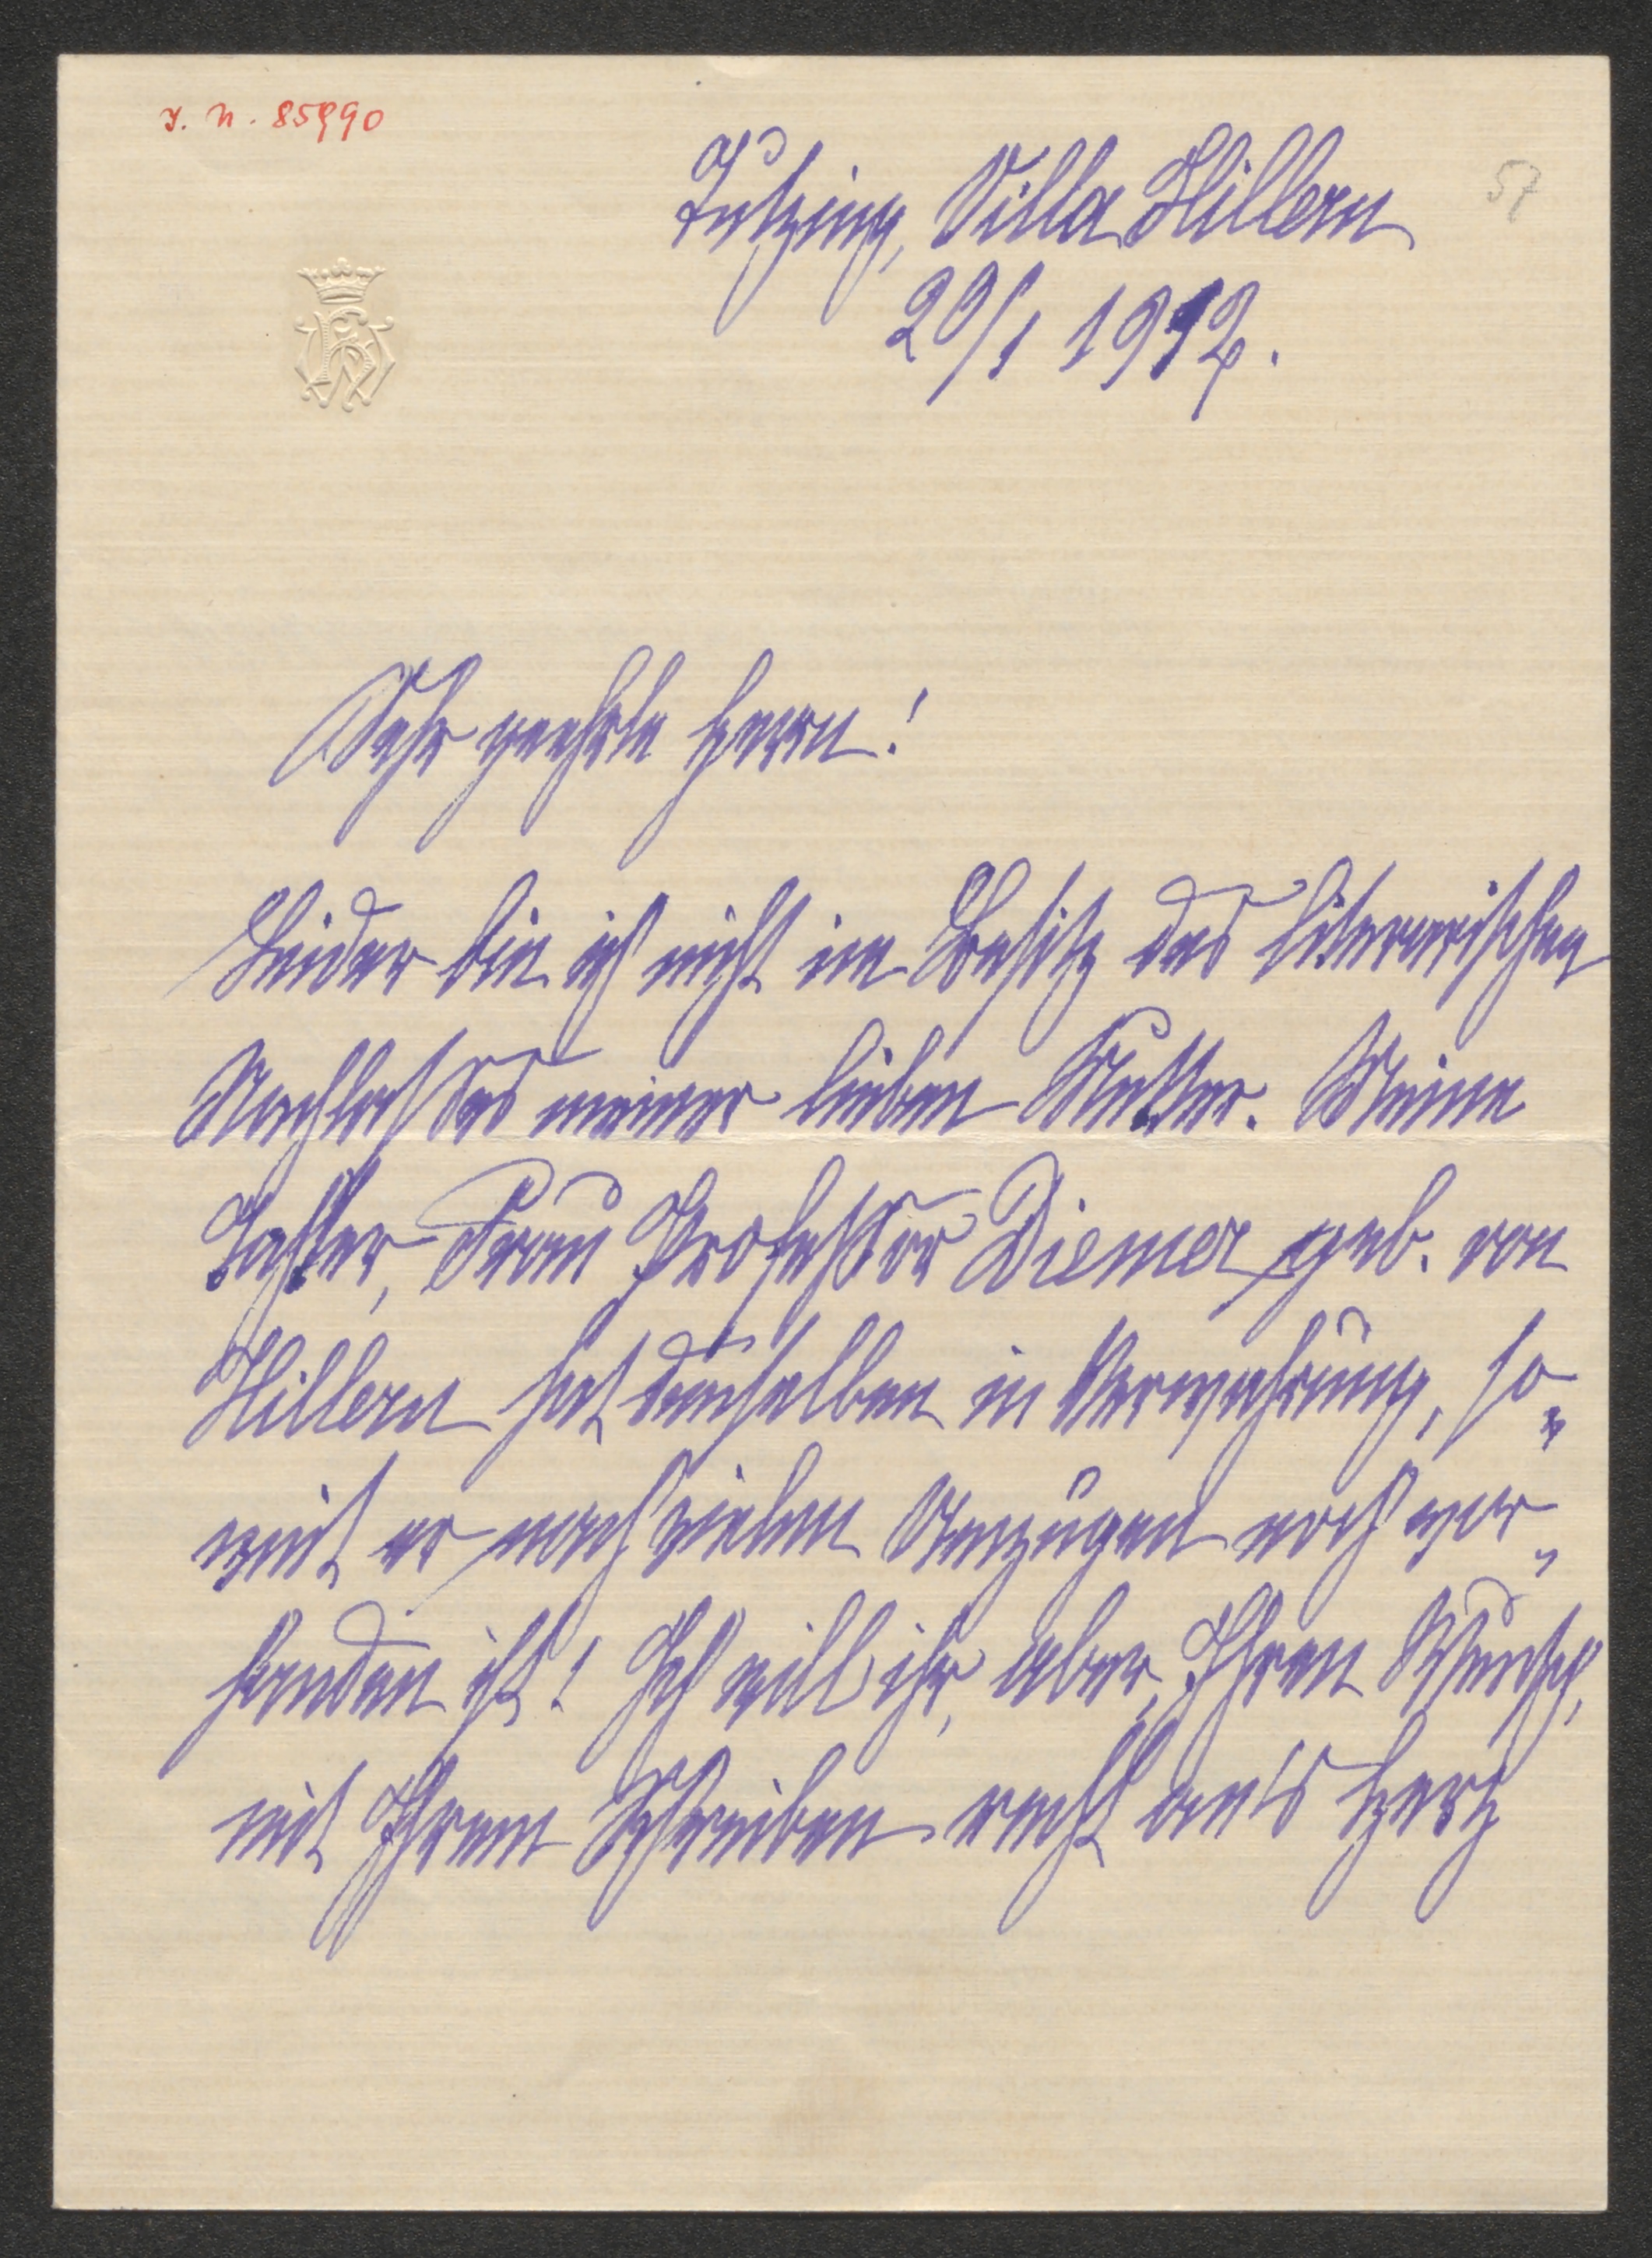 I. N. 85990
57
Tutzing, Villa Hillern
20/1 1912.
Sehr geehrte Herrn!
Leider bin ich nicht im Besitz des literarischen
Nachlasses meiner lieben Mutter. Meine
Tochter, Frau Professor Diemer geb. von
Hillern hat denselben in Verwahrung, so„
weit er nach vielen Umzügen noch vor„
handen ist! Ich will ihr, aber, Ihren Wunsch,
mit Ihrem Schreiben recht an's Herz